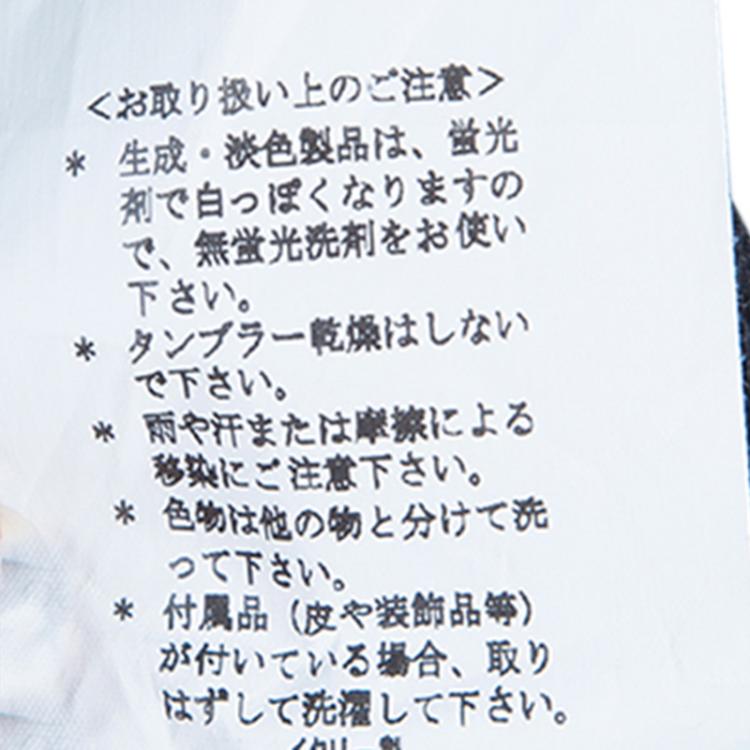 ＜お取り扱い上のご注意＞
＊ 生成・淡色製品は、蛍光
剤で白っぽくなりますの
で、無蛍光洗剤をお使い
下さい。
＊ タンブラー乾燥はしない
で下さい。
＊ 雨や汗または摩擦による
移染にご注意下さい。
＊ 色物は他の物と分けて洗
って下さい。
＊ 付属品（皮や装飾品等）
が付いている場合、取り
はずして洗濯して下さい。
イタリー製